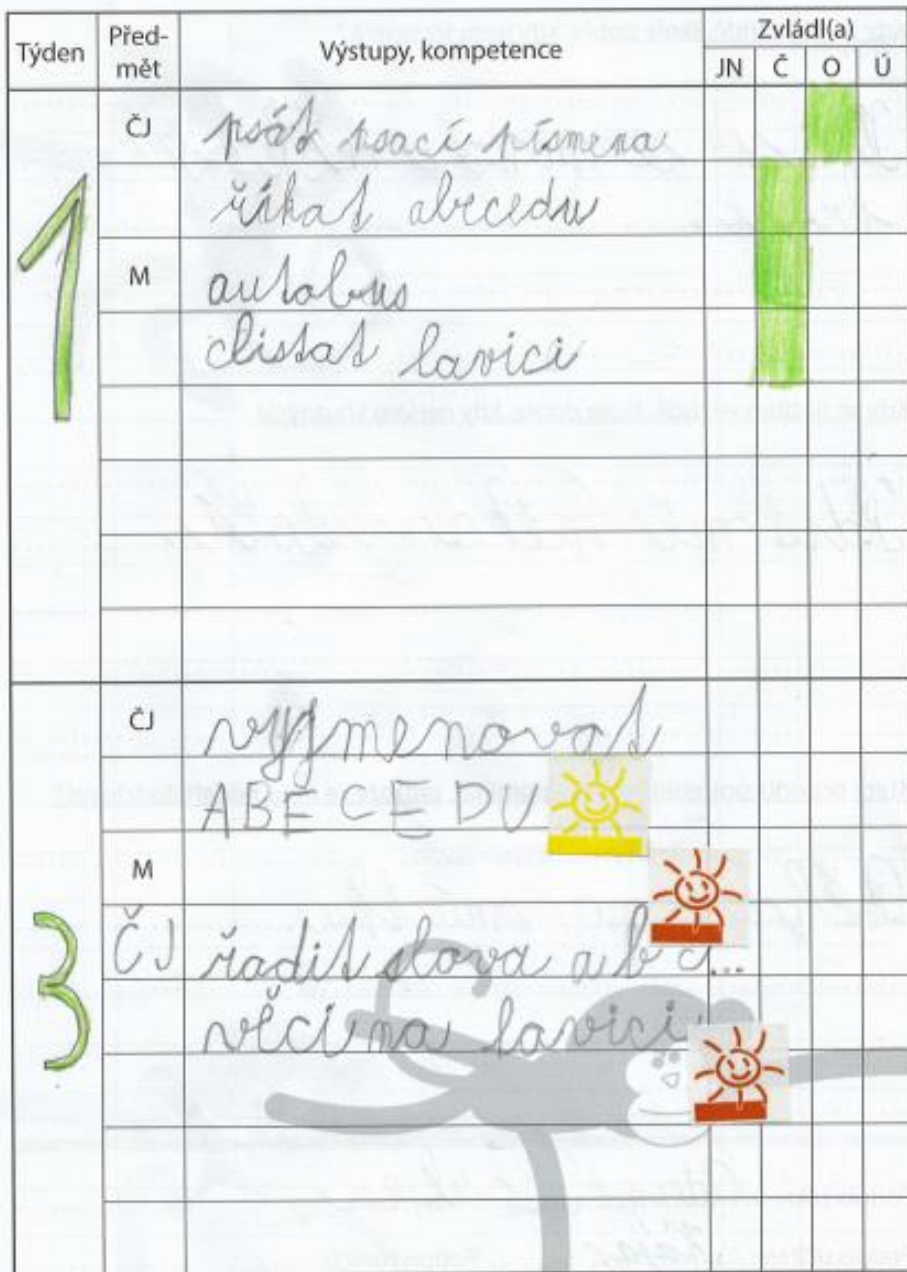 Týden Před-mět Výstupy, kompetence Zvládl(a)
JN Č O Ú
1 ČJ psát psací písmena
říkat abecedu
M autobus
clistat lavici
3 ČJ vyjmenovat
ABECEDU
M
ČJ řadit slova a b c...
věci na lavici